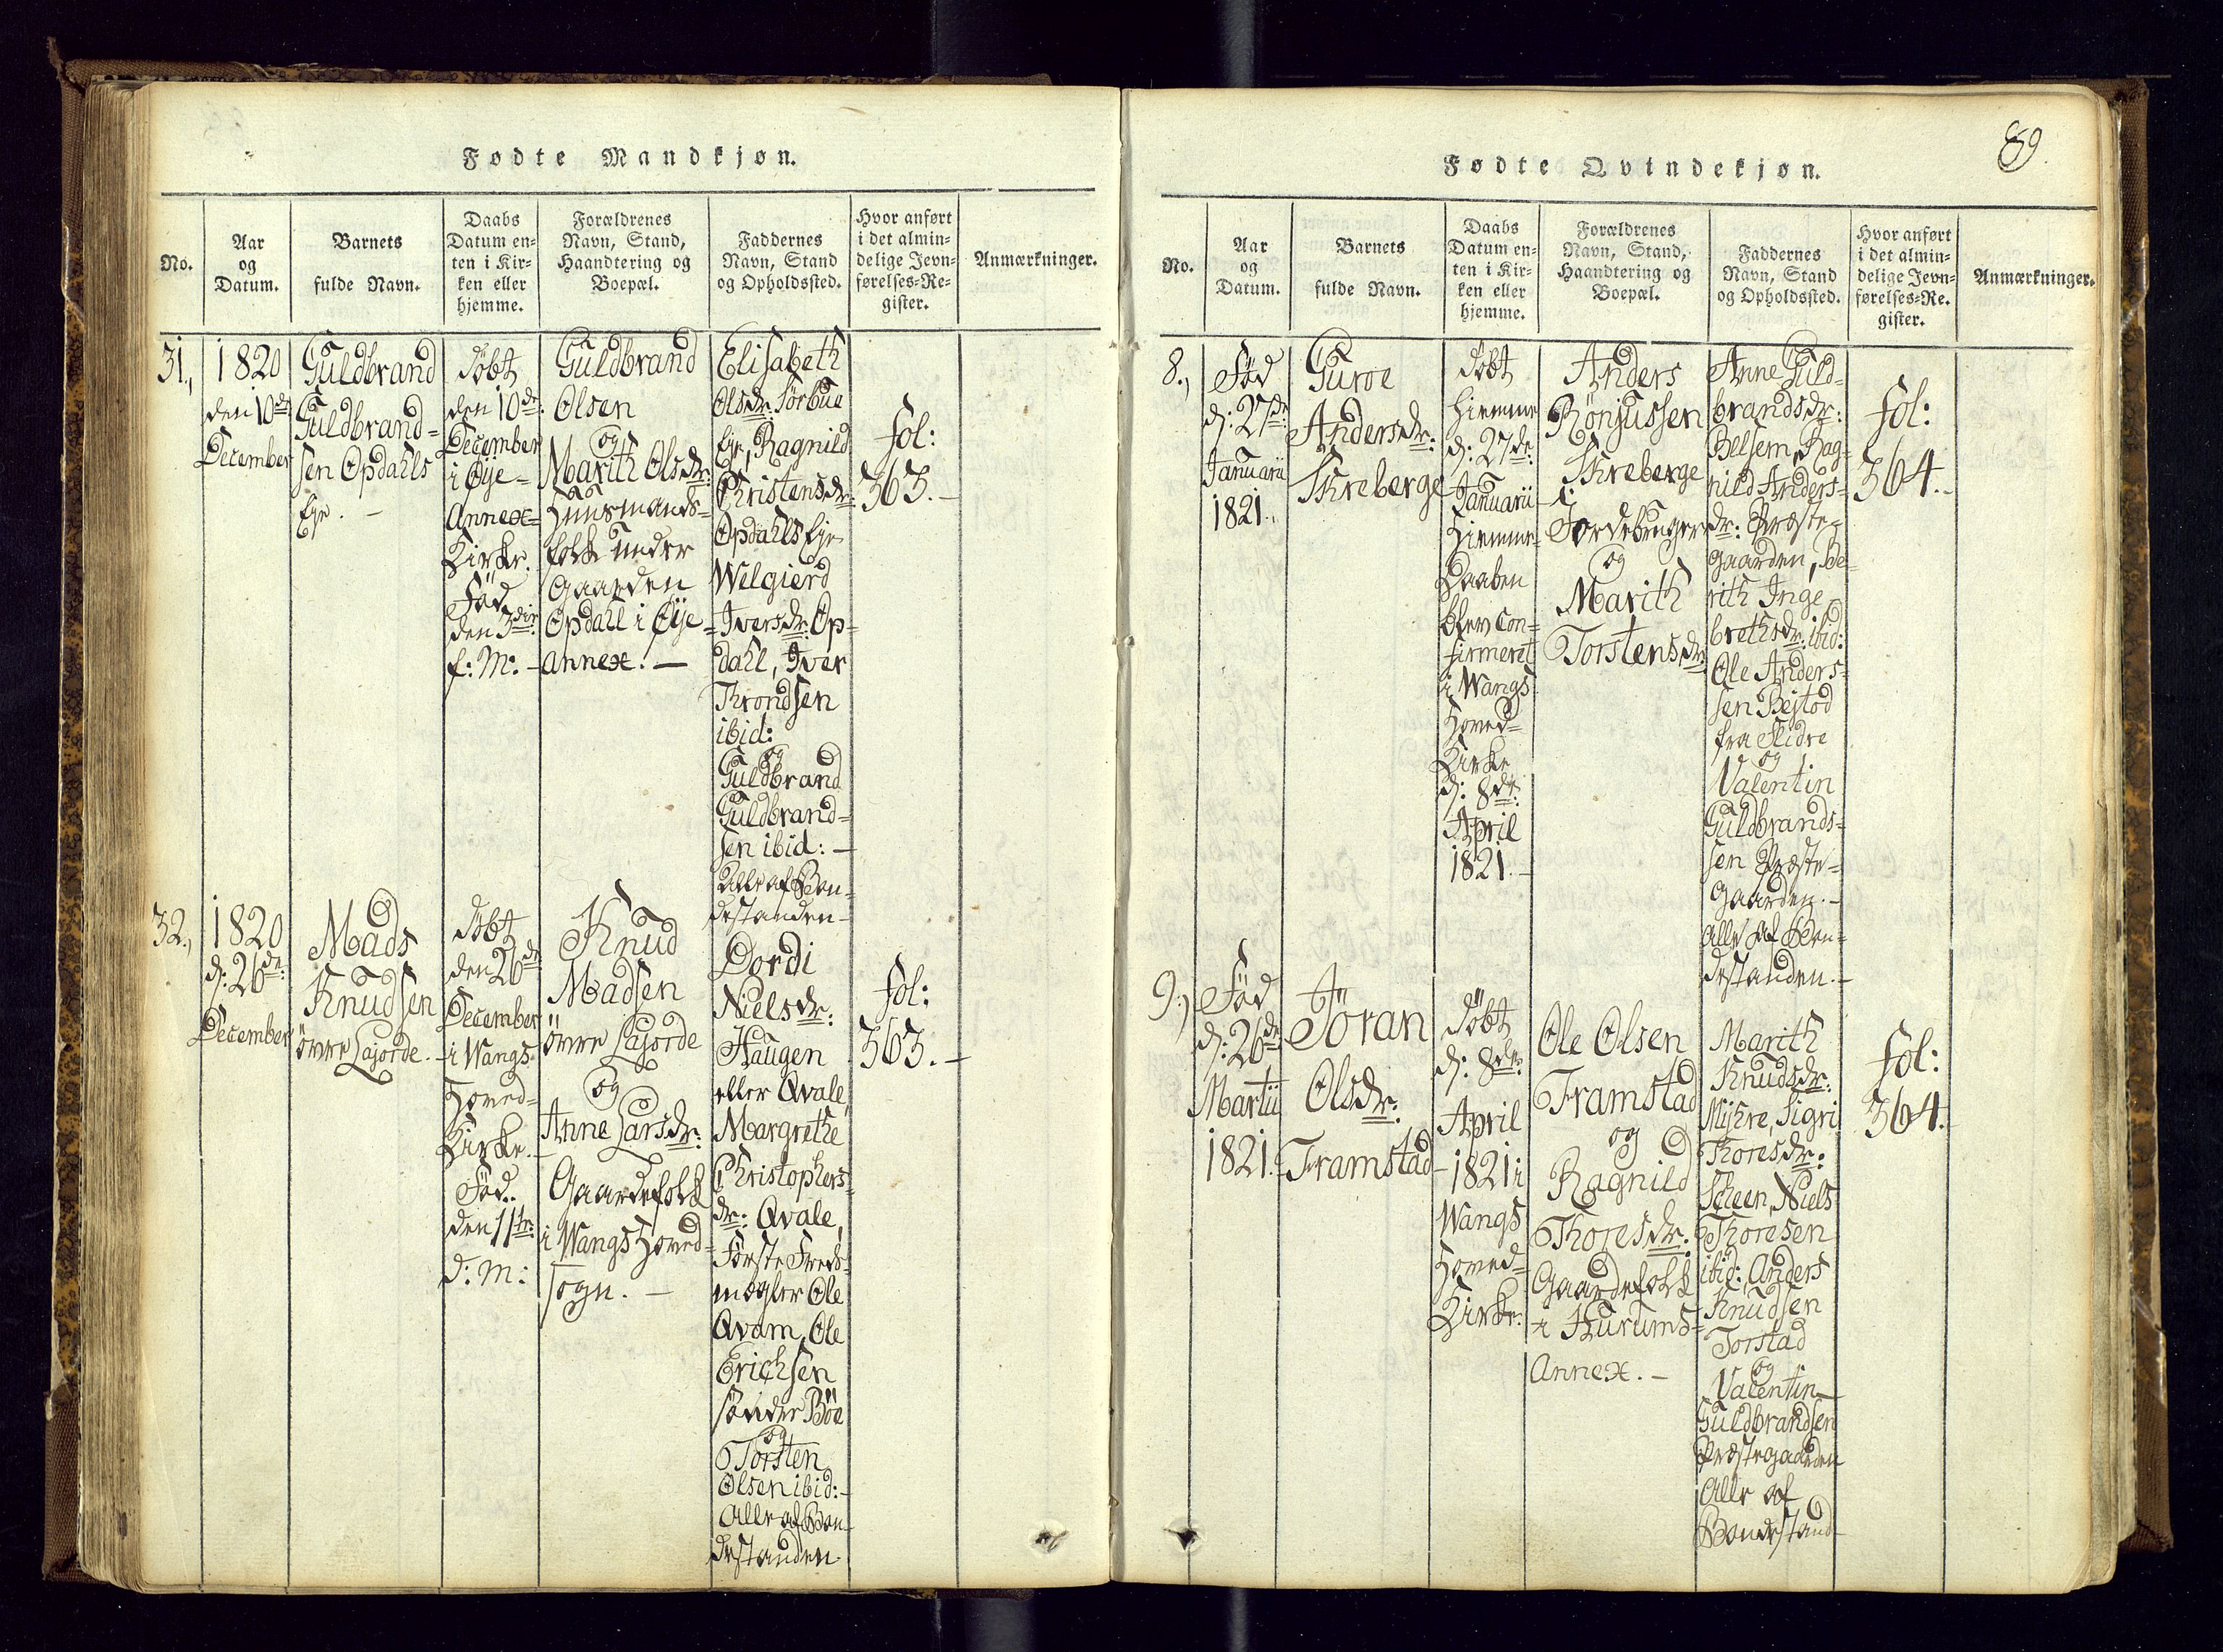 Fødte Mandkjøn.
No.
Aar
og
Datum.
Barnets
fulde Navn.
Daabs
Datum en-
ten i Kir-
ken eller
hjemme.
Forældrenes
Navn, Stand,
Haandtering og
Boepæl.
Faddernes
Navn, Stand
og Opholdssted.
Hvor anført
i det almin-
delige Jevn-
førelses-Re-
gister.
Anmærkninger.
31.,
1820
den 10de
December
Guldbrand
Guldbrand-
sen Opdahls
Eje. -
døbt
den 10de:
December
i Øye=
Annex=
Kirke.
Fød
den 3die
f: M: -
Guldbrand
Olsen
og
Marith Olsdr:
Huusmands-
folk under
Gaarden
Opdahl i Øye=
Annex. -
Elisabeth
Olsdr: Sørbue
Eje, Ragnild
Christensdr:
Opdahls Eje
Welgierd
Iversdr: Op-
dahl, Iver
Throndsen
ibid:
og
Guldbrand
Guldbrand=
sen ibid: -
Alle af Bon-
destanden -
fol:
363. -
32.,
1820
d: 26de:
December
Mads
Knudsen
öwre Lajorde. -
døbt
den 26de
December
i Wangs
Hoved=
Kirke. -
Fød
den 11te:
d: M:
Knud
Madsen
öwre Lajorde
og
Anne Larsdr:
Gaardefolk
i Wangs Hoved=
sogn. -
Dordi
Nielsdr:
Haugen
eller Qvale,
Margrethe
Christophers=
dr: Qvale,
Første Freds-
mægler Ole
Qvam, Ole
Erichsen
sönder Böe
og
Torsten
Olsen ibid: -
Alle af Bon-
destanden.
fol:
363. -
Fødte Qvindekjøn.
89.
No.
Aar
og
Datum.
Barnets
fulde Navn.
Daabs
Datum en-
ten i Kir-
ken eller
hjemme.
Forældrenes
Navn, Stand,
Haandtering og
Boepæl.
Faddernes
Navn, Stand
og Opholdssted.
Hvor anført
i det almin-
delige Jevn-
førelses-Re-
gister.
Anmærkninger.
8.,
Fød
d: 27de:
Januarii
1821.
Guroe
Andersdr:
Skreberge
døbt
hiemme
d: 27de:
Januarii
Hiemme-
Daaben
blev con-
firmeret
i Wangs
Hoved=
Kirke
d: 8de:
April
1821. -
Anders
Rönjussen
Skreberge
i
Jordebruger
og
Marith
Torstensdr:
Anne Guld-
brandsdr:
Belsem, Rag-
nild Anders=
dr: Præste-
gaarden, Be-
rith Inge-
brethsdr: ibid:
Ole Anders=
sen Bejtod
fra Slidre
og
Valentin
Guldbrands=
sen Præste=
Gaarden. -
Alle af Bon=
destanden. -
fol:
364. -
9.,
Fød
d: 26de
Martii
1821. -
Jöran
Olsdr:
Framstad
døbt
d: 8de:
April
1821 i
Wangs
Hoved=
Kirke.
Ole Olsen
Framstad
og
Ragnild
Thoresdr:
Gaardefolk
i Hurums=
Annex. -
Marith
Knudsdr:
Mijhre, Sigri
Thoresdr:
Scheen, Niels
Thoresen
ibid: Anders
Knudsen
Torstad
og
Valentin
Guldbrandsen
Præstegaarden
Alle af
Bondestand-
fol:
364.